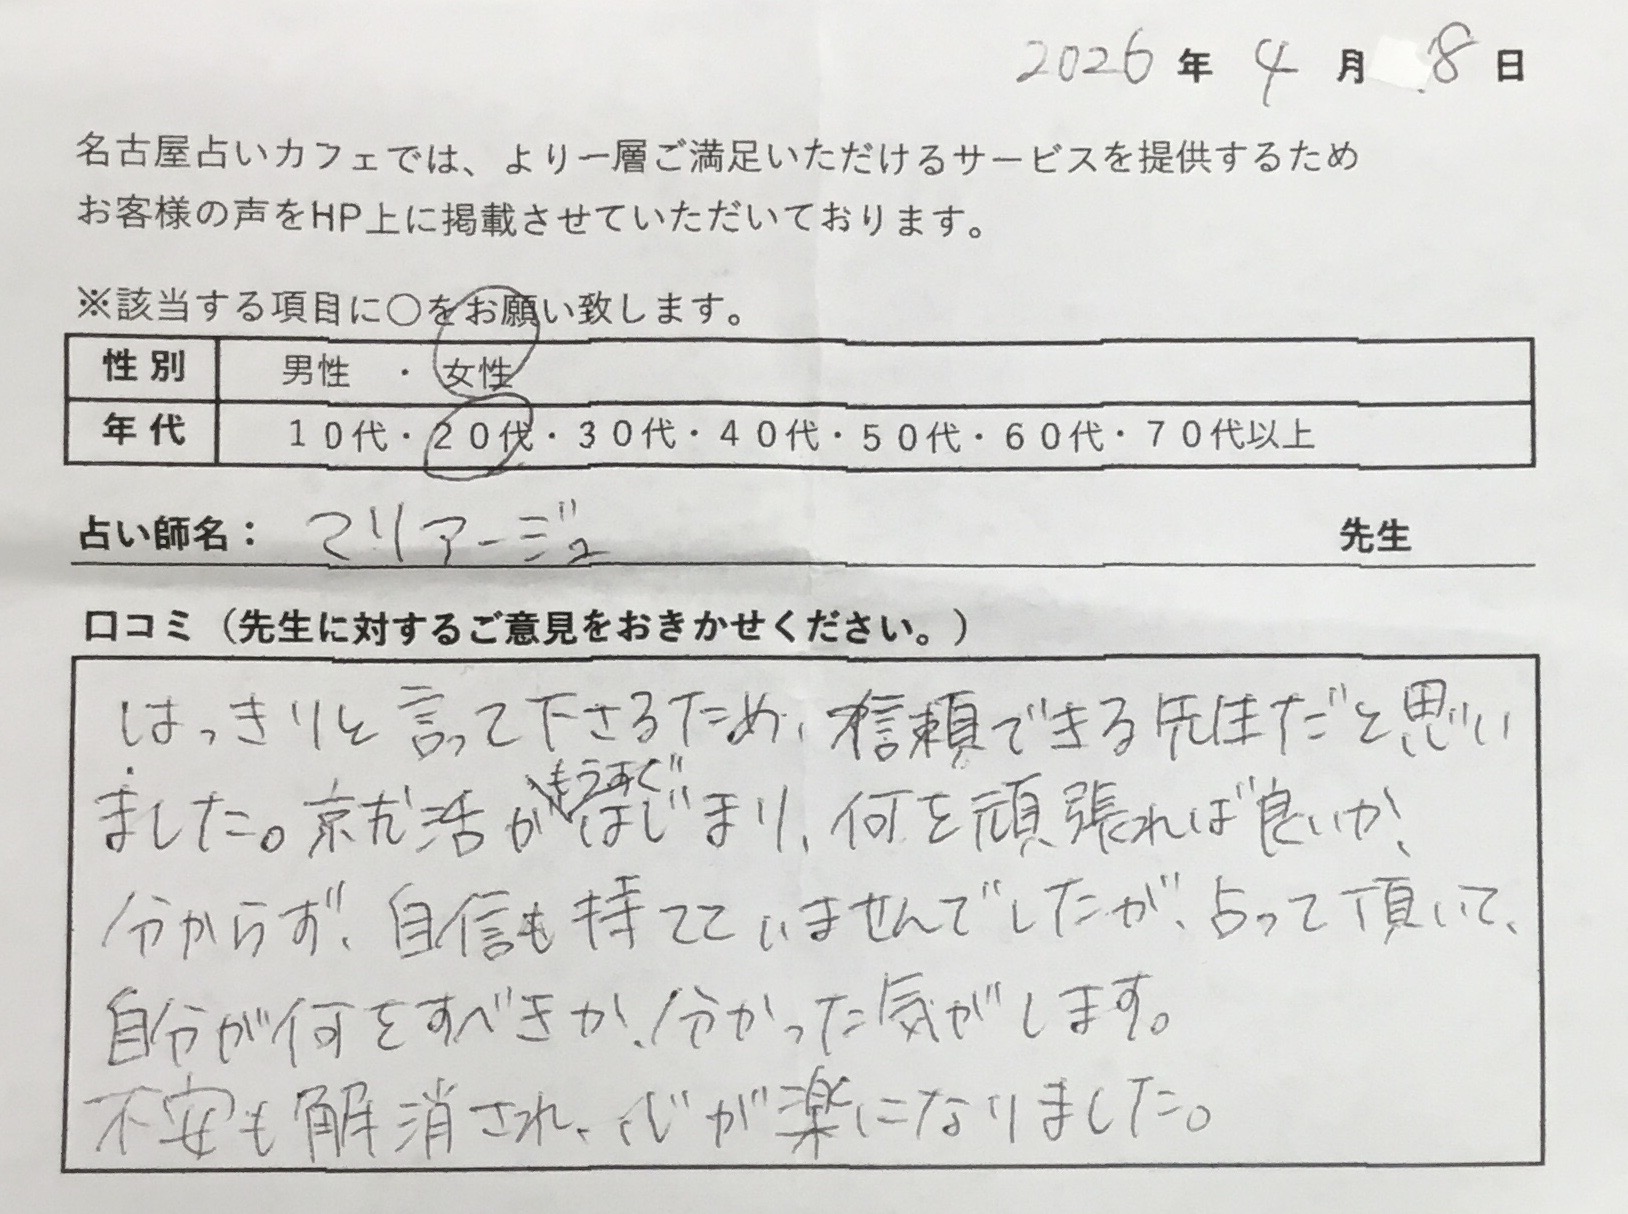 2026年4月8日
名古屋占いカフェでは、より一層ご満足いただけるサービスを提供するため
お客様の声をHP上に掲載させていただいております。
※該当する項目に〇をお願い致します。
性別 男性 ・ 女性
年代 10代・20代・30代・40代・50代・60代・70代以上
占い師名： マリアージュ 先生
口コミ（先生に対するご意見をおきかせください。）
はっきりと言って下さるため、信頼できる先生だと思い
ました。就活がもうすぐはじまり、何を頑張れば良いか、
分からず、自信も持てていませんでしたが、占って頂いて、
自分が何をすべきか、分かった気がします。
不安も解消され、心が楽になりました。